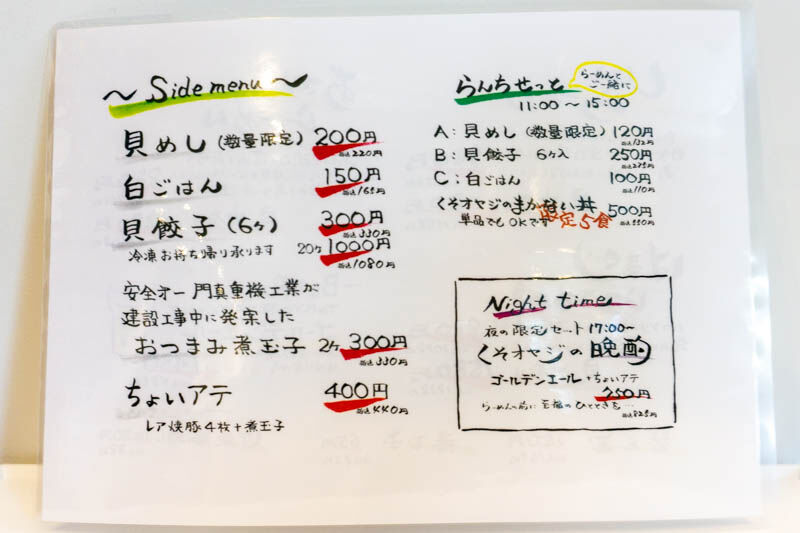 〜 Side menu 〜
貝めし(数量限定) 200円
税込220円
白ごはん 150円
税込165円
貝餃子(6ヶ) 300円
税込330円
冷凍お持ち帰り承ります 20ヶ 1000円
税込1080円
安全オー門真重機工業が
建設工事中に発案した
おつまみ煮玉子 2ヶ 300円
税込330円
ちょいアテ 400円
税込440円
レア焼豚4枚+煮玉子
らんちせっと
らーめんと
ご一緒に
11:00 〜 15:00
A:貝めし(数量限定) 120円
税込132円
B:貝餃子 6ヶ入 250円
税込275円
C:白ごはん 100円
税込110円
くそオヤジのまかない丼 500円
税込550円
単品でもOKです
限定5食
Night time
夜の限定セット 17:00〜
くそオヤジの晩酌
ゴールデンエール+ちょいアテ
750円
税込825円
らーめんの前に至福のひとときを…